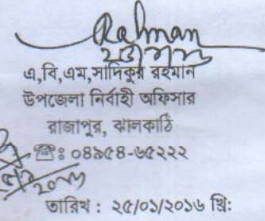 Rahman
এ,বি,এম,সাদিকুর রহমান
উপজেলা নির্বাহী অফিসার
রাজাপুর, ঝালকাঠি
☎: ০৪৯৫৪-৬৫২২২
তারিখ : ২৫/০১/২০১৬ খ্রি: